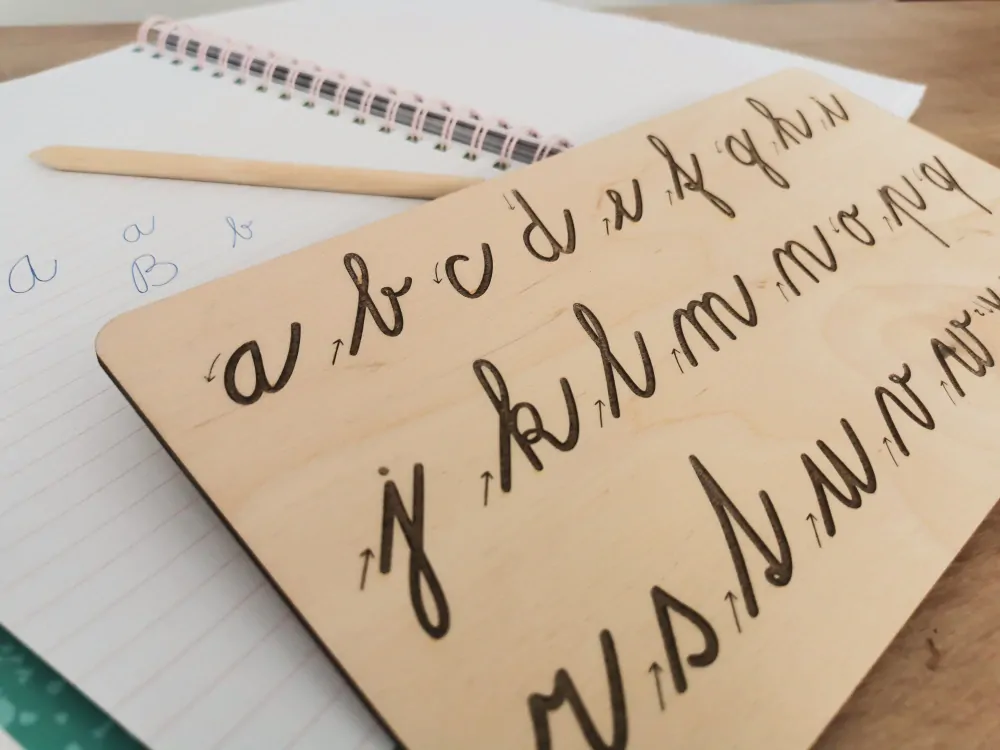 a b
a B
a b c d e f g h i
j k l m n o p q
r s t u v w